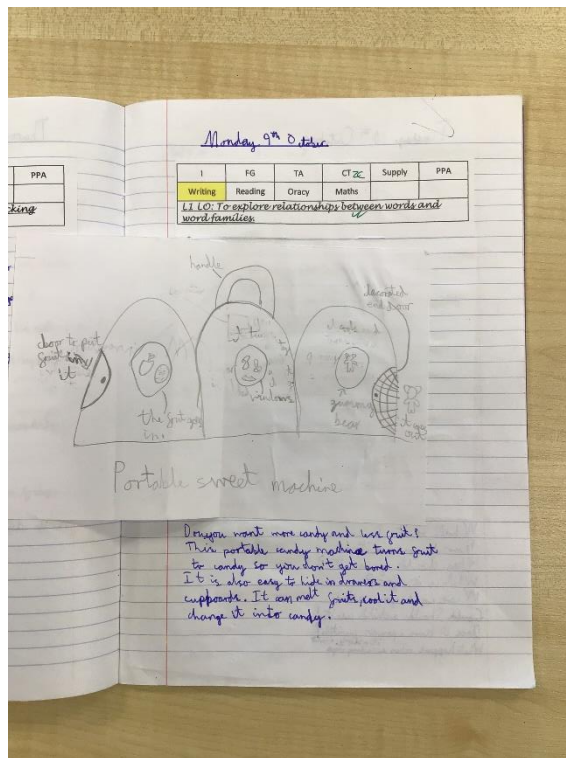 Monday 9th October
PPA
I FG TA CT ZC Supply PPA
Writing Reading Oracy Maths
L1 LO: To explore relationships between words and
word families.
king
handle
decorated
end door
door to put
fruit
it
the fruit goes
in.
windows
gummy
bear
it goes
out
Portable sweet machine
Do you want more candy and less fruit?
This portable candy machine turns fruit
to candy so you don't get bored.
It is also easy to hide in drawers and
cupboards. It can melt fruits, cool it and
change it into candy.